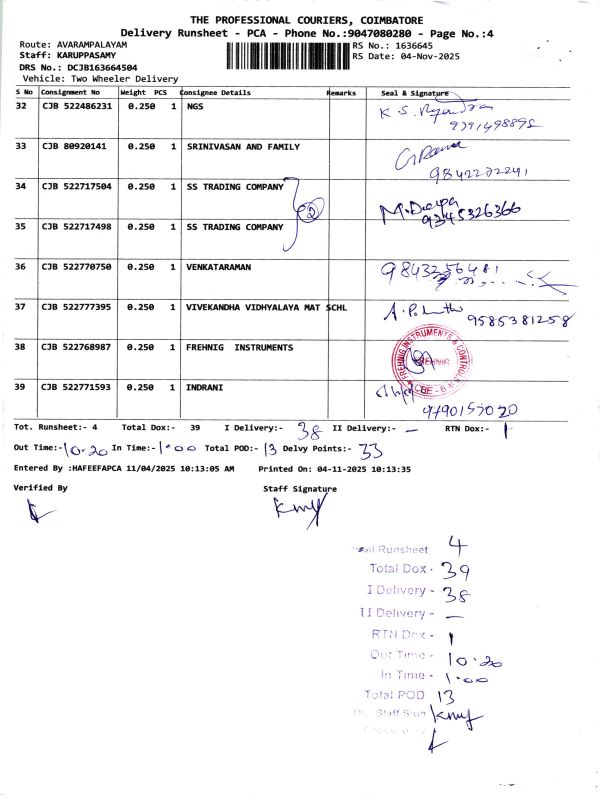 THE PROFESSIONAL COURIERS, COIMBATORE
Delivery Runsheet - PCA - Phone No.:9047080280 - Page No.:4
Route: AVARAMPALAYAM RS No.: 1636645
Staff: KARUPPASAMY RS Date: 04-Nov-2025
DRS No.: DCJB163664504
Vehicle: Two Wheeler Delivery
S No Consignment No Weight PCS Consignee Details Remarks Seal & Signature
32 CJB 522486231 0.250 1 NGS K. S.
33 CJB 80920141 0.250 1 SRINIVASAN AND FAMILY
9842272241
34 CJB 522717504 0.250 1 SS TRADING COMPANY
2 9345326366
35 CJB 522717498 0.250 1 SS TRADING COMPANY
36 CJB 522770750 0.250 1 VENKATARAMAN 9843256481
37 CJB 522777395 0.250 1 VIVEKANDHA VIDHYALAYA MAT SCHL 9585381258
38 CJB 522768987 0.250 1 FREHNIG INSTRUMENTS FREHNIG INSTRUMENTS & CONTROLS CBE - 6
39 CJB 522771593 0.250 1 INDRANI
Tot. Runsheet:- 4 Total Dox:- 39 I Delivery:- 38 II Delivery:- — RTN Dox:- 1
Out Time:- 10.20 In Time:- 1.00 Total POD:- 13 Delvy Points:- 33
Entered By :HAFEEFAPCA 11/04/2025 10:13:05 AM Printed On: 04-11-2025 10:13:35
Verified By Staff Signature
Runsheet 4
Total Dox - 39
I Delivery - 38
II Delivery - —
RTN Dox - 1
Out Time - 10.20
In Time - 1.00
Total POD 13
Staff Sign